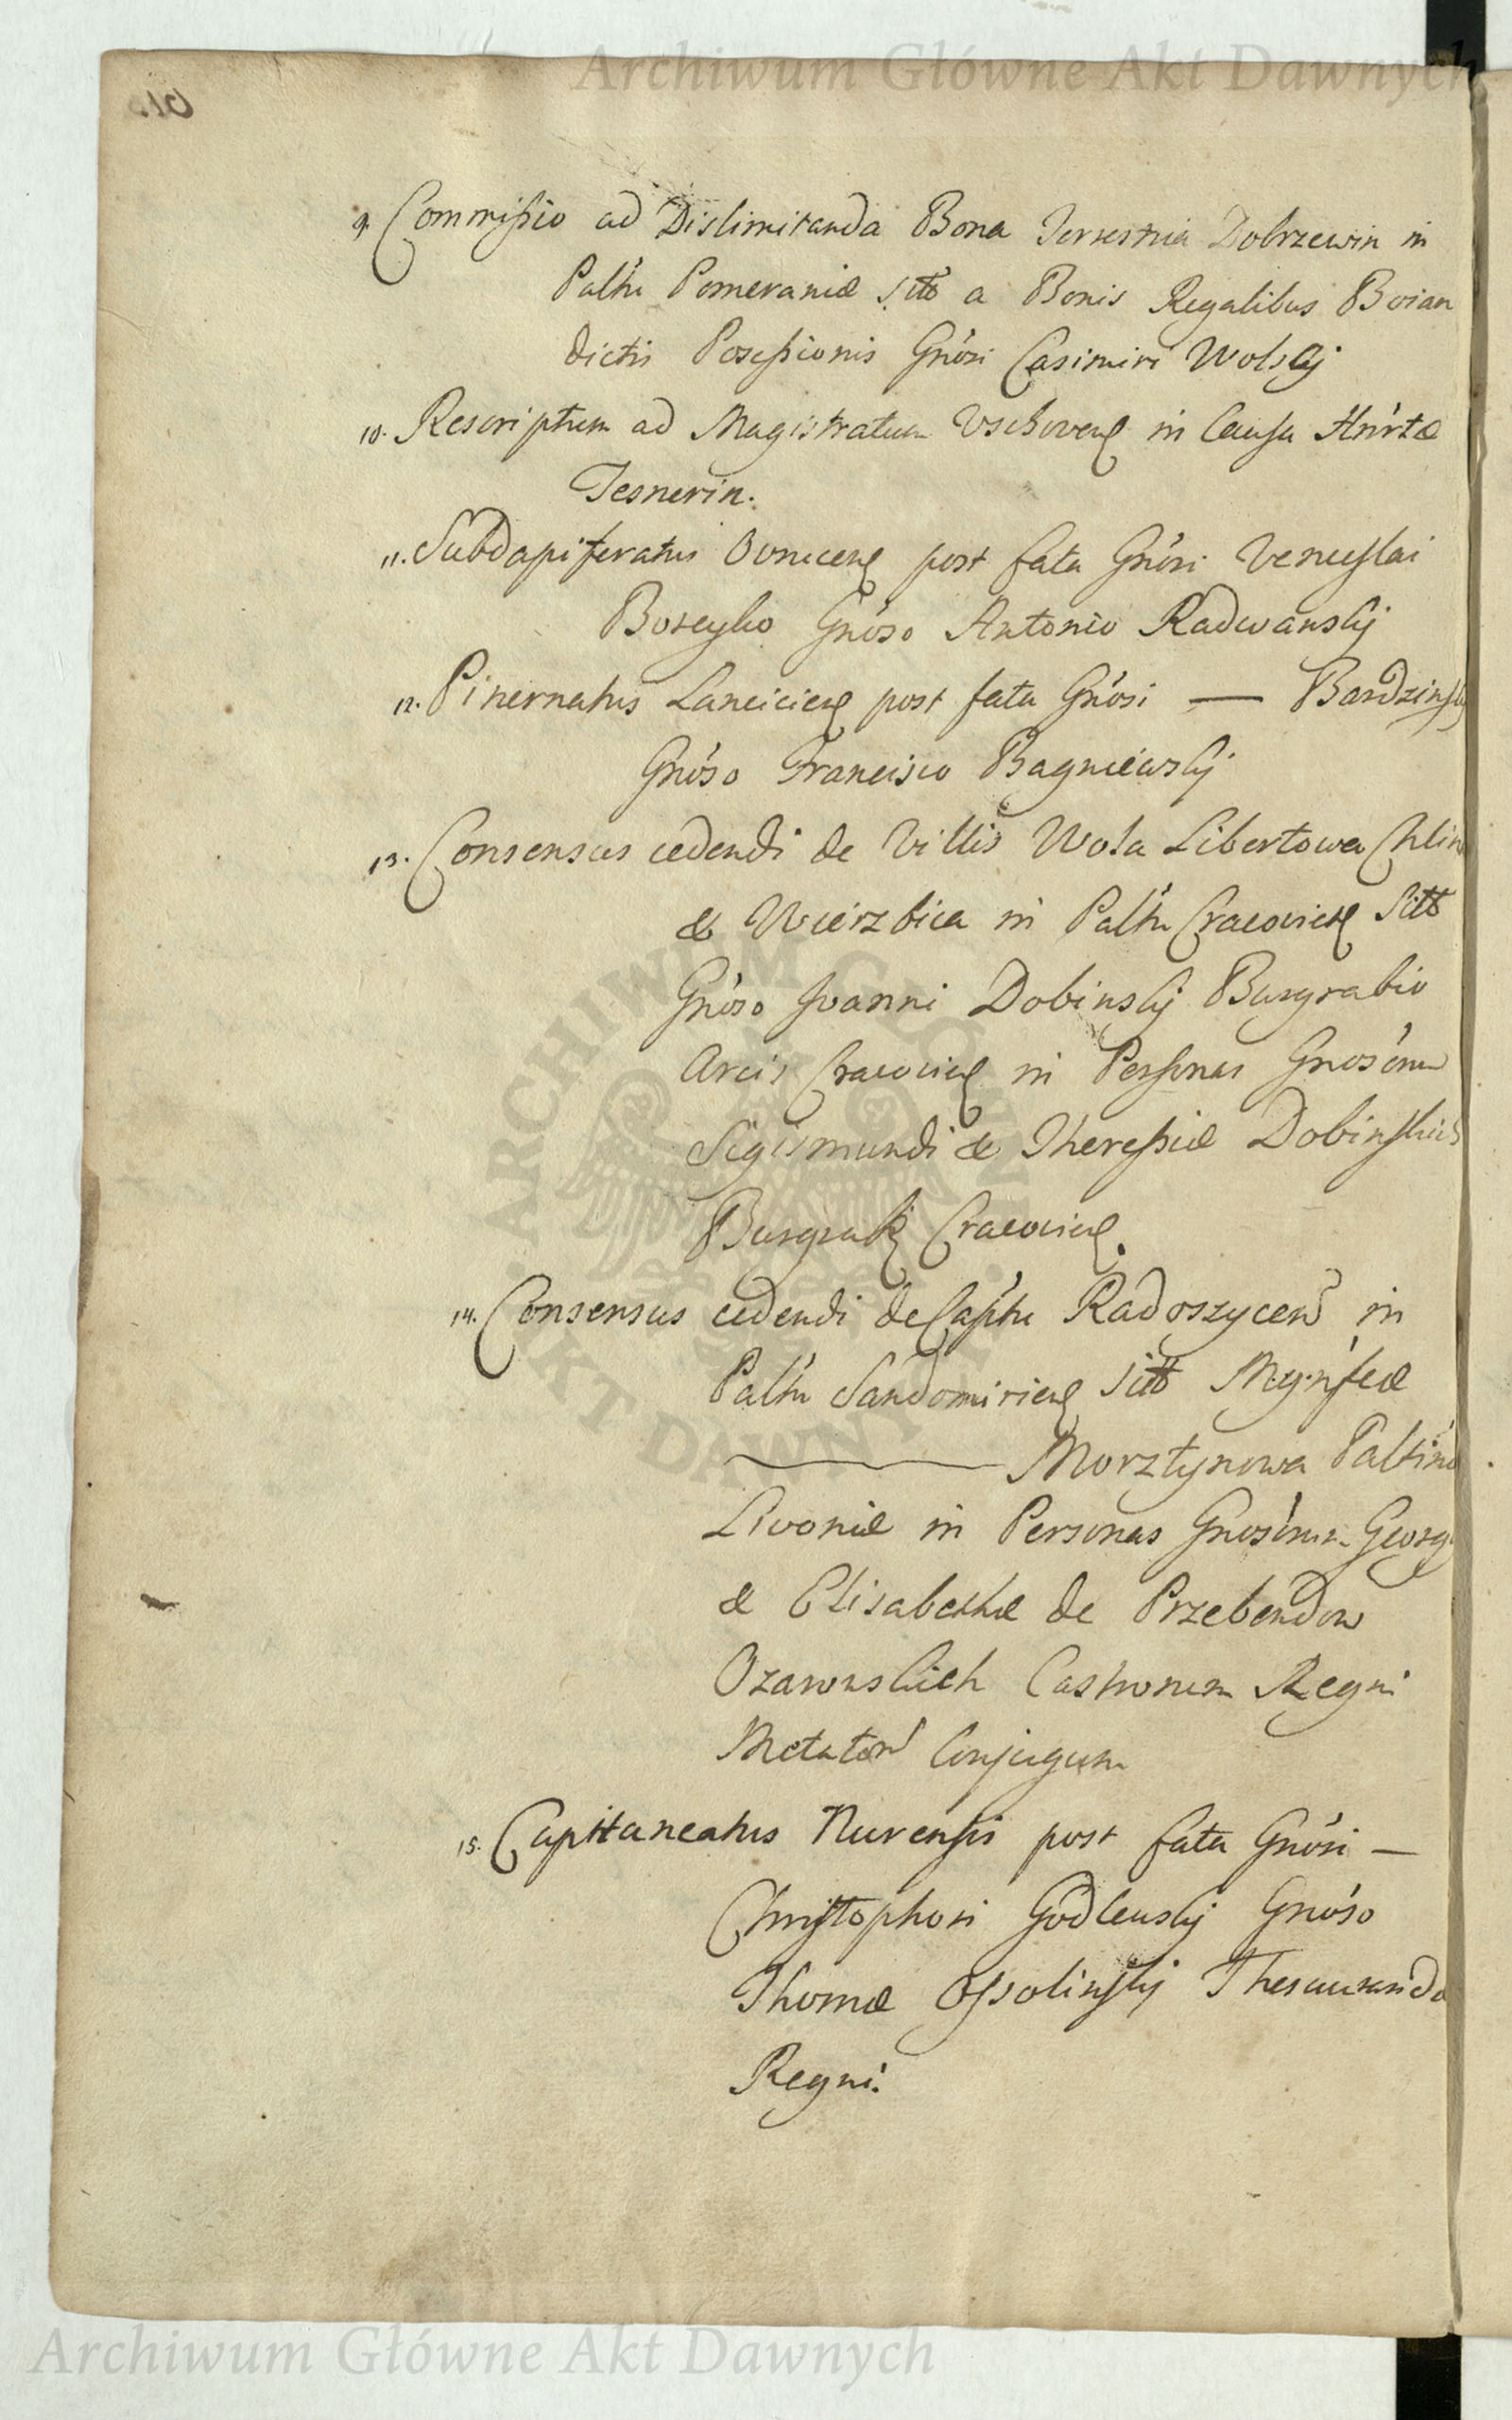 Archiwum Główne Akt Dawnych
9. Commissio ad Dislimitanda Bona Terrestria Dobrzewin in
Paltu Pomeraniæ sitt a Bonis Regalibus Boian
dictis Possessionis Gnosi Casimiri Wolskj
10. Rescriptum ad Magistratum Vschoven in Causa
Tesnerin.
11. Subdapiferatus post fata Gnosi Venceslai
Gnoso Antonio Radwanskj
12. Pincernatus Lancicien post fata Gnosi — Bardzinskj
Gnoso Francisco Bagniewskj
13. Consensus cedendi de Villis Wola Libertowa Chlin
& Wierzbica in Paltu Cracovien sitt
Gnoso Joanni Dobinskj Burgrabio
Arcis Cracovien in Personas Gnosorum
Sigismundi & Theressiæ Dobinskich
Burgrab Cracovien.
14. Consensus cedendi de Captu Radoszycen in
Paltu Sandomirien sitt Mgnfcæ
— Morsztynowa Paltino
Livoniæ in Personas Gnosorum Georg
& Elisabethæ de Przebendow
Ozarowskich Castrorum Regni
Metator Conjugum
15. Capitaneatus Nurensis post fata Gnosi —
Christophori Godlewskj Gnoso
Thomæ Ossolinskj Thesaurarido
Regni.
ARCHIWUM GŁÓWNE AKT DAWNYCH
Archiwum Główne Akt Dawnych